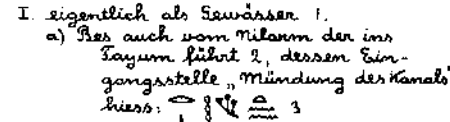 I. eigentlich als Gewässer 1.
a) Bes auch vom Nilarm der ins
Fayum führt 2, dessen Ein-
gangsstelle „Mündung des Kanals"
hiess: 3